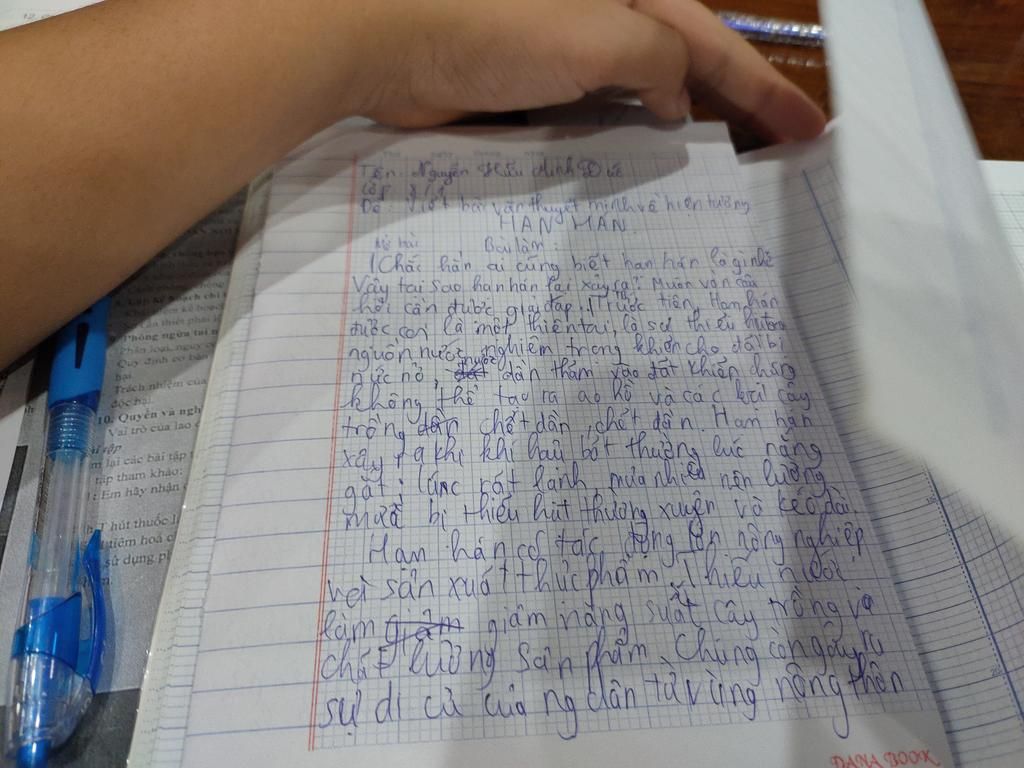 Tên: Nguyễn Hữu Minh
Lớp
Đề: Viết bài văn thuyết minh về hiện tượng
HAN HAN
Mở bài Bài làm:
Chắc hẳn ai cũng biết hạn hán là gì nhỉ
Vậy tại sao hạn hán lại xảy ra? Muôn vàn câu
hỏi cần được giải đáp. Trước tiên, Hạn hán
được coi là một thiên tai, là sự thiếu hụt
nguồn nước nghiêm trọng khiến cho đất bị
nức nở, nước dần thấm vào đất khiến chúng
không thể tạo ra ao hồ và các loại cây
trồng chết dần, chết dần. Hạn hán
xảy ra khi khí hậu bất thường lúc nắng
gắt, lúc rất lạnh mưa nhiều nên lượng
mưa bị thiếu hụt thường xuyên và kéo dài.
Hạn hán có tác động lớn nông nghiệp
với sản xuất thực phẩm. Thiếu nước
làm giảm giảm năng suất cây trồng và
chất lượng sản phẩm. Chúng còn gây ra
sự di cư của người dân từ vùng nông thôn
DANA BOOK
9. Phòng ngừa tai n
Trách nhiệm của
độc hại.
10. Quyền và ngh
Vai trò của lao
m lại các bài tập
tập tham khảo:
: Em hãy nhận
hút thuốc l
tiêm hoá c
sử dụng ph